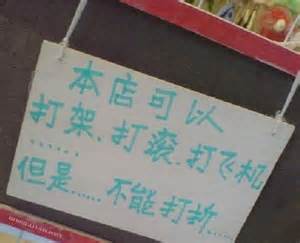 本店可以
打架、打滚、打飞机
......
但是...... 不能打折......